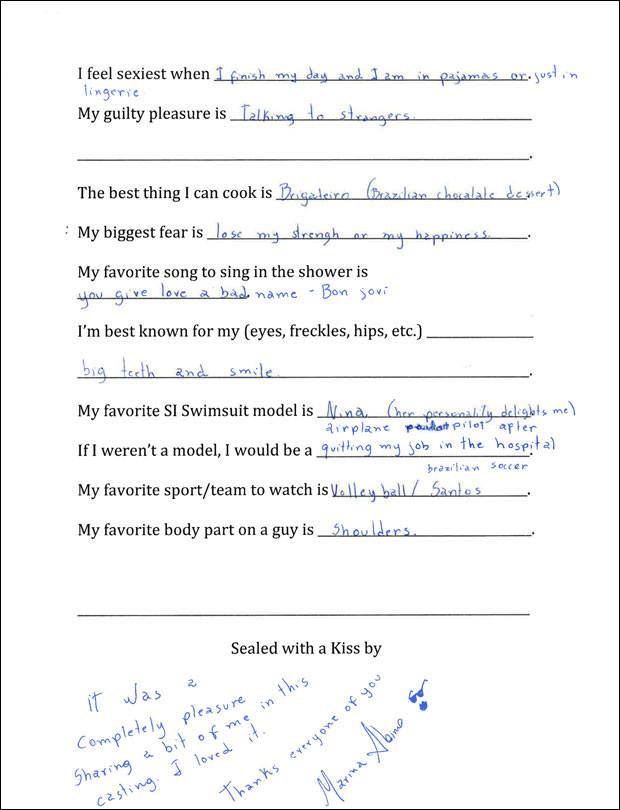 I feel sexiest when I finish my day and I am in pajamas or just in
lingerie.
My guilty pleasure is Talking to strangers.
The best thing I can cook is Brigadeiro (Brazilian chocalate dessert)
My biggest fear is lose my strengh or my happiness.
My favorite song to sing in the shower is
you give love a bad name - Bon Jovi
I'm best known for my (eyes, freckles, hips, etc.)
big teeth and smile.
My favorite SI Swimsuit model is Nina. (her personality delights me)
airplane pilot after
If I weren't a model, I would be a quitting my job in the hospital
brazilian soccer
My favorite sport/team to watch is Volleyball / Santos
My favorite body part on a guy is Shoulders.
Sealed with a Kiss by
it was a
completely pleasure
sharing a bit of me in this
casting. I loved it.
Thanks everyone of you
Marina